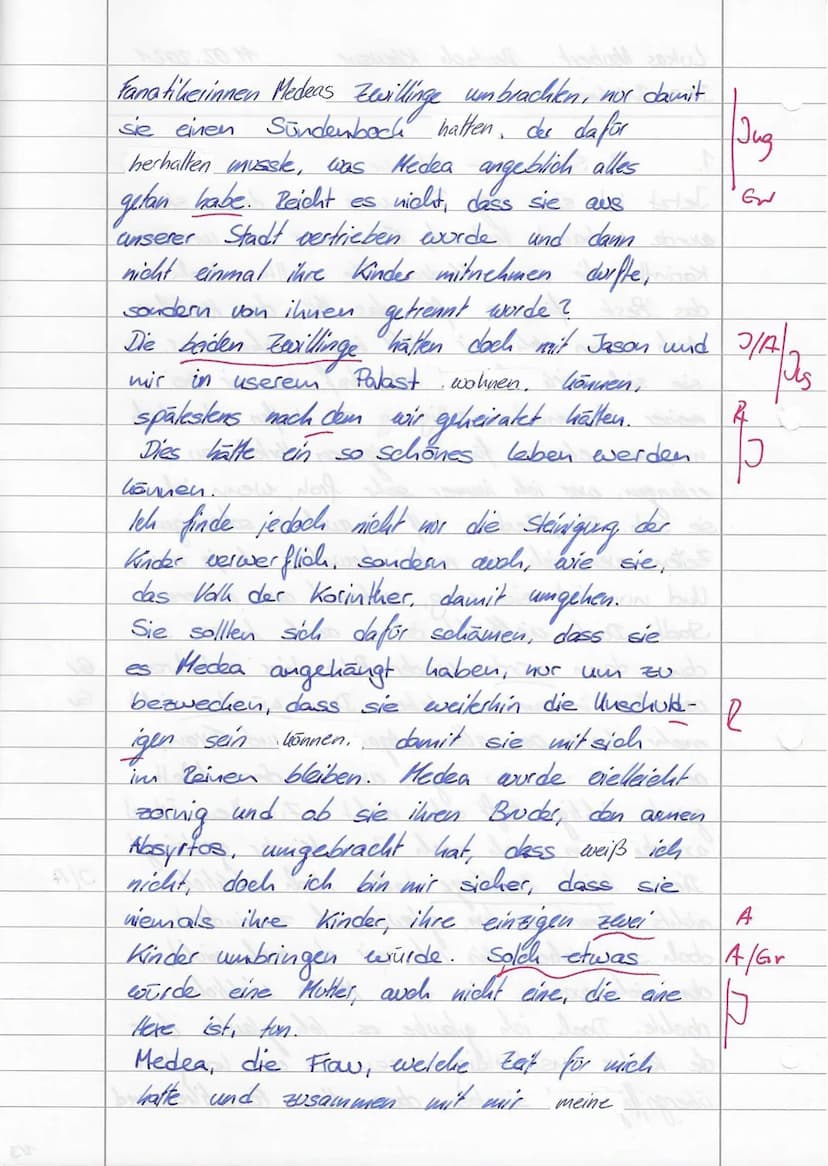 Fanatikerinnen Medeas Zwillinge umbrachten, nur damit
sie einen Sündenbock hatten, der dafür
herhalten musste, was Medea angeblich alles
getan habe. Reicht es nicht, dass sie aus
unserer Stadt vertrieben wurde und dann
nicht einmal ihre Kinder mitnehmen durfte,
sondern von ihnen getrennt wurde?
Die beiden Zwillinge hätten doch mit Jason und
mir in userem Palast wohnen können,
spätestens nach dem wir geheiratet hätten.
Dies hätte ein so schönes Leben werden
können.
Ich finde jedoch nicht nur die Steinigung der
Kinder verwerflich, sondern auch, wie sie,
das Volk der Korinther, damit umgehen.
Sie sollten sich dafür schämen, dass sie
es Medea angehängt haben, nur um zu
bezwecken, dass sie weiterhin die Unschuld-
igen sein können, damit sie mit sich
im Reinen bleiben. Medea wurde vielleicht
zornig und ob sie ihren Bruder, den armen
Absyrtos, umgebracht hat, dass weiß ich
nicht, doch ich bin mir sicher, dass sie
niemals ihre Kinder, ihre einzigen zwei
Kinder umbringen würde. Solch etwas
würde eine Mutter, auch nicht eine, die eine
Hexe ist, tun.
Medea, die Frau, welche Zeit für mich
hatte und zusammen mit mir meine
Gr
I/A
R
I
R
A
A/Gr
I